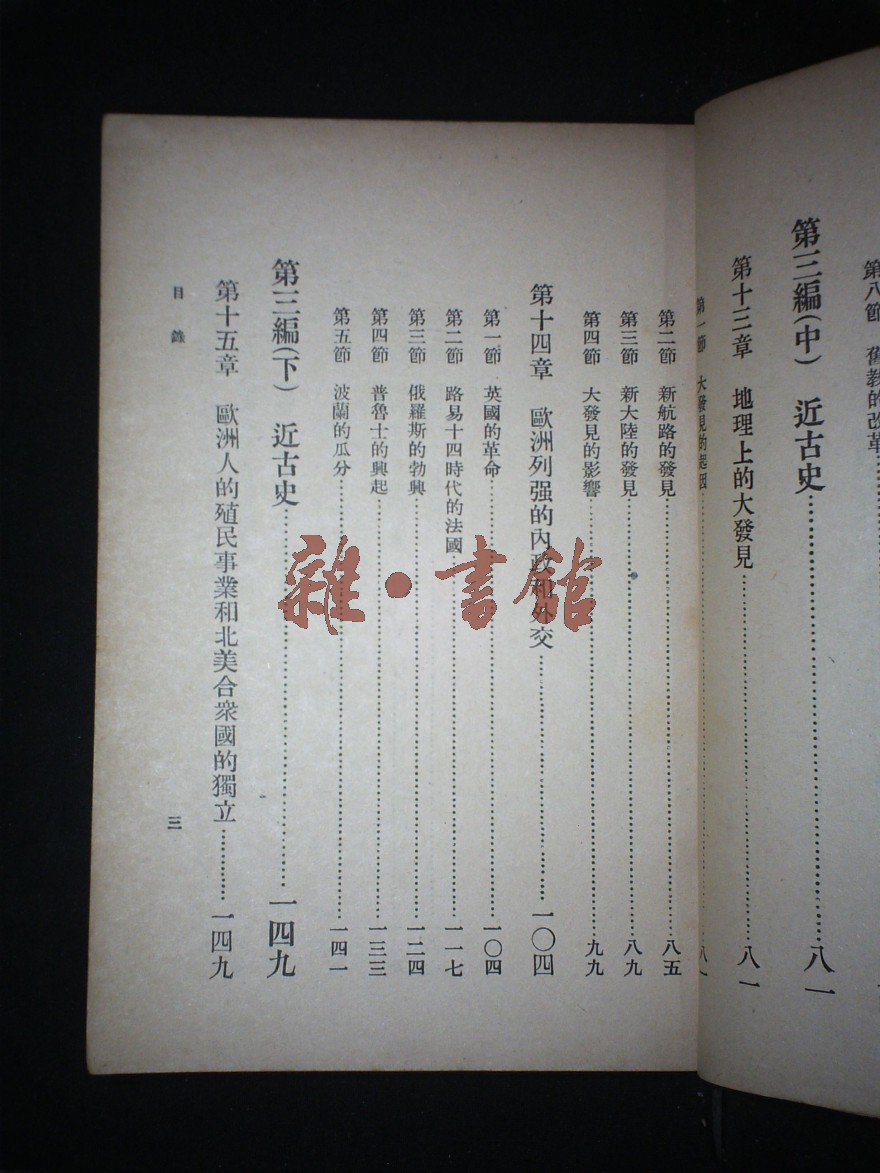 第八節　舊教的改革
第三編(中)　近古史……八一
第十三章　地理上的大發見……八一
第一節　大發見的起因……八一
第二節　新航路的發見……八五
第三節　新大陸的發見……八九
第四節　大發見的影響……九九
第十四章　歐洲列强的內政和外交……一〇四
第一節　英國的革命……一〇四
第二節　路易十四時代的法國……一一七
第三節　俄羅斯的勃興……一二四
第四節　普魯士的興起……一三三
第五節　波蘭的瓜分……一四一
第三編(下)　近古史……一四九
第十五章　歐洲人的殖民事業和北美合衆國的獨立……一四九
目錄　三
雜·書館